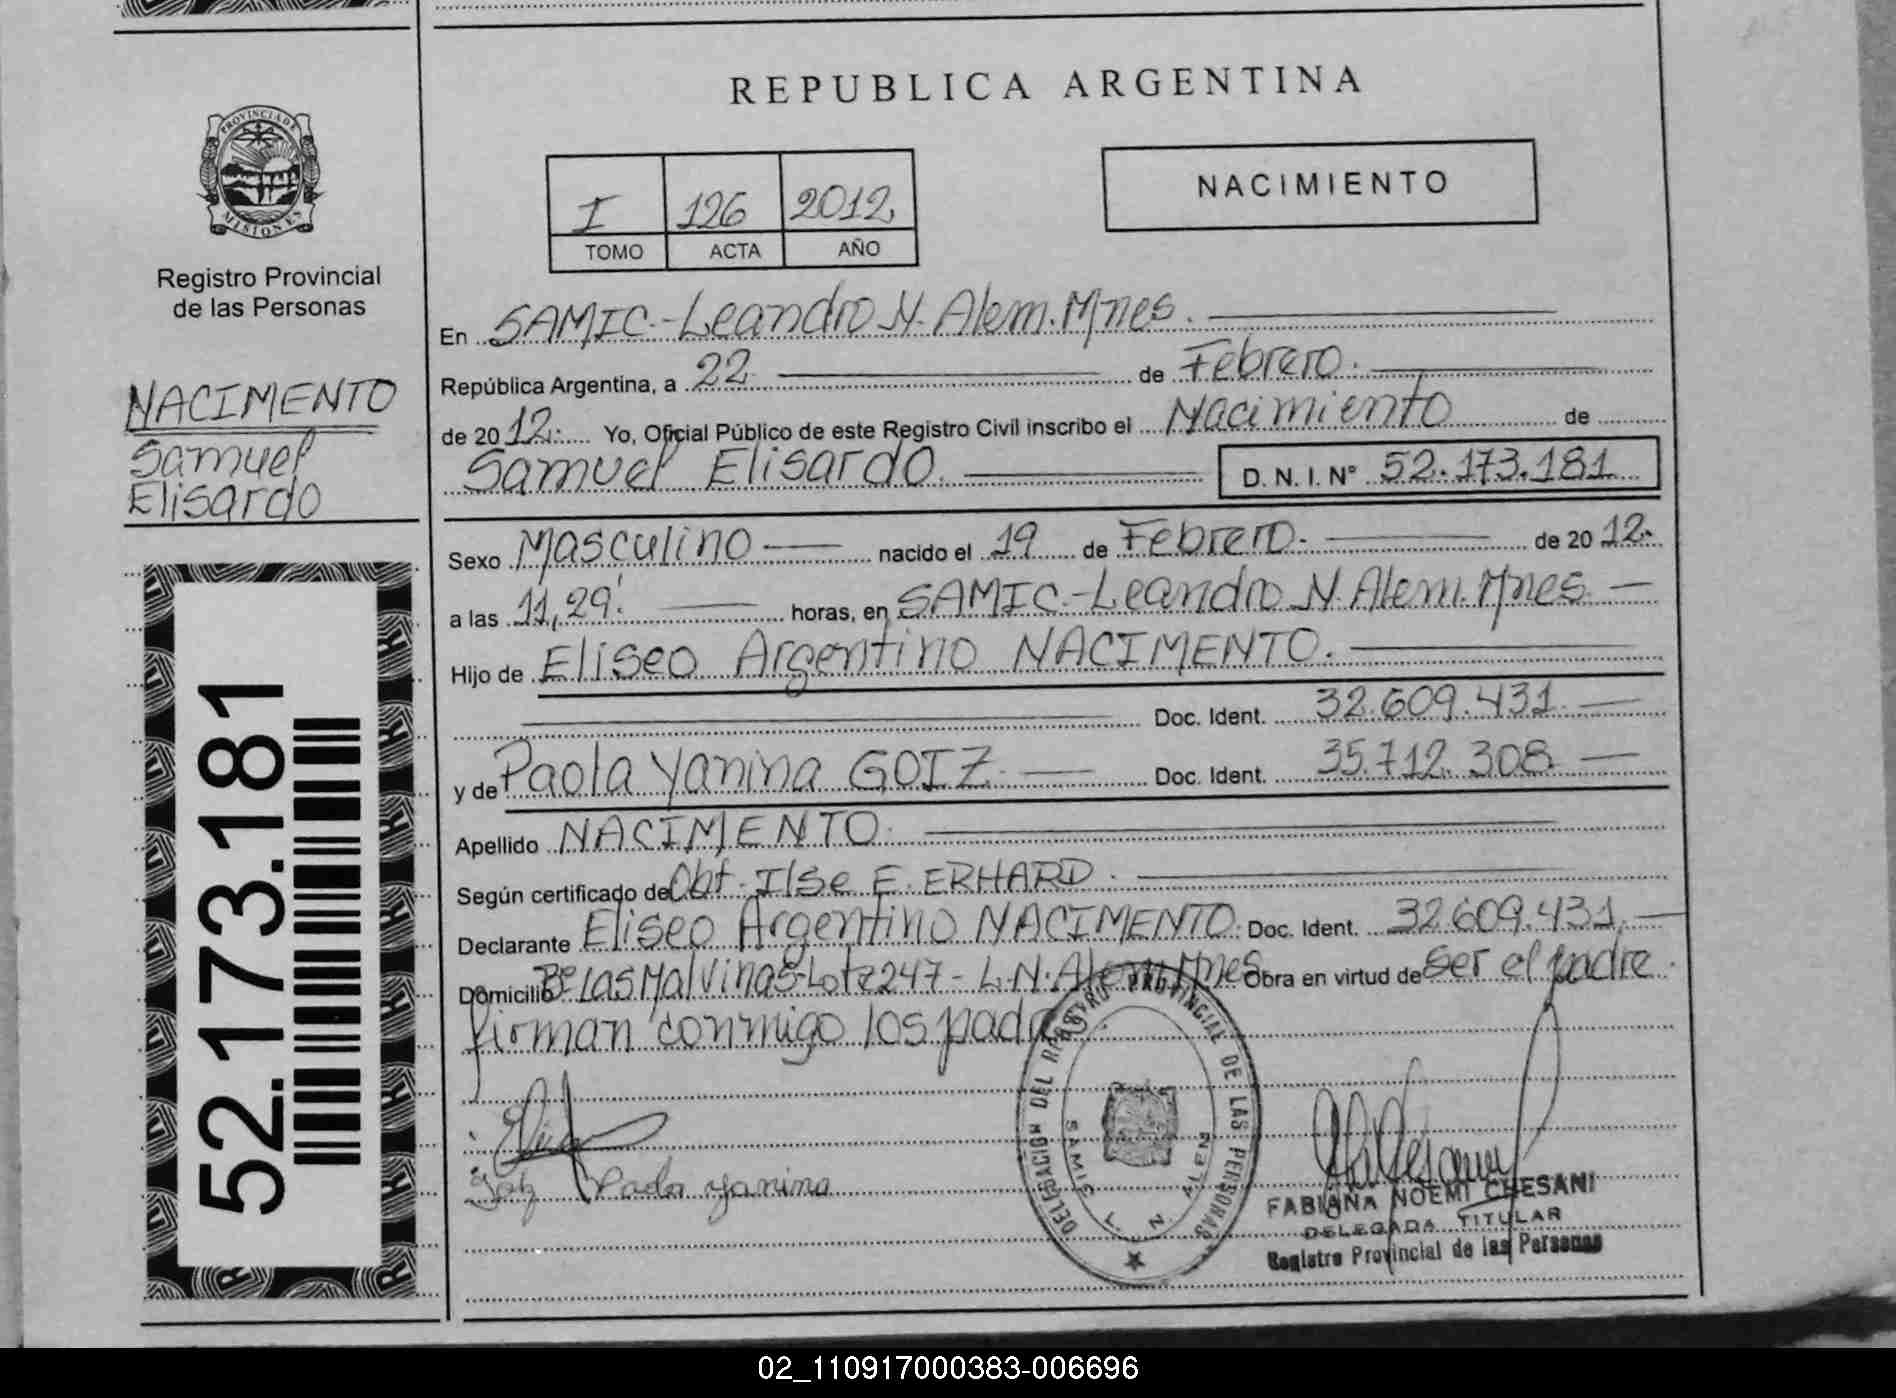 PROVINCIA DE
MISIONES
Registro Provincial
de las Personas
NACIMENTO
Samuel
Elisardo
52.173.181
REPUBLICA ARGENTINA
I 126 2012
TOMO ACTA AÑO
NACIMIENTO
En SAMIC.-Leandro N. Alem. Mnes.
República Argentina, a 22 de Febrero.
de 2012. Yo, Oficial Público de este Registro Civil inscribo el Nacimiento de
Samuel Elisardo. D. N. I. Nº 52.173.181
Sexo Masculino nacido el 19 de Febrero. de 2012.
a las 11,29' horas, en SAMIC.-Leandro N. Alem. Mnes.
Hijo de Eliseo Argentino NACIMENTO.
Doc. Ident. 32.609.431
y de Paola Yanina GOTZ. Doc. Ident. 35.712.308
Apellido NACIMENTO.
Según certificado de Obt. Ilse E. ERHARD.
Declarante Eliseo Argentino NACIMENTO. Doc. Ident. 32.609.431.
Domicilio Bº Las Malvinas-Lote 247 - L.N. Alem. Mnes Obra en virtud de ser el padre.
firman conmigo los padres.
Gotz Paola Yanina
DELEGACION DEL REGISTRO PROVINCIAL DE LAS PERSONAS
SAMIC L. N. ALEM
FABIANA NOEMI CHESANI
DELEGADA TITULAR
Registro Provincial de las Personas
02_110917000383-006696